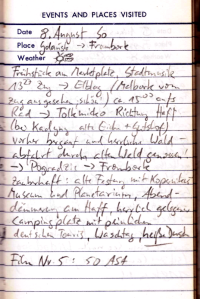 EVENTS AND PLACES VISITED
Date 8. August 80
Place Gdańsk → Frombork
Weather
Frühstück am Marktplatz, Stadtmusik
13²⁷ Zug → Elbląg (Malbork vom
Zug aus gesehen, schön!) ca. 15⁰⁰ aufs
Rad → Tolkmicko Richtung Haft
(bei Kadyny alte
vorher bergauf und herrliche Wald-
abfahrt durch alten Wald genossen!
→ Pogrodzie → Frombork
Zauberhaft: alte Festung mit Kopernikus
Museum und Planetarium, Abend-
dämmern am Haff, herrlich gelegener
Campingplatz mit peinlichen
deutschen Touris, Waschtag, heiße Dusch
Film Nr. 5: 50 ASA